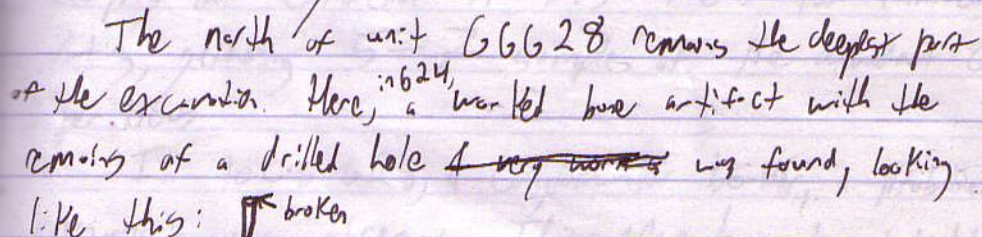 The north of unit GGG28 remains the deepest part
of the excavation. Here, in G24, a worked bone artifact with the
remains of a drilled hole was found, looking
like this: broken